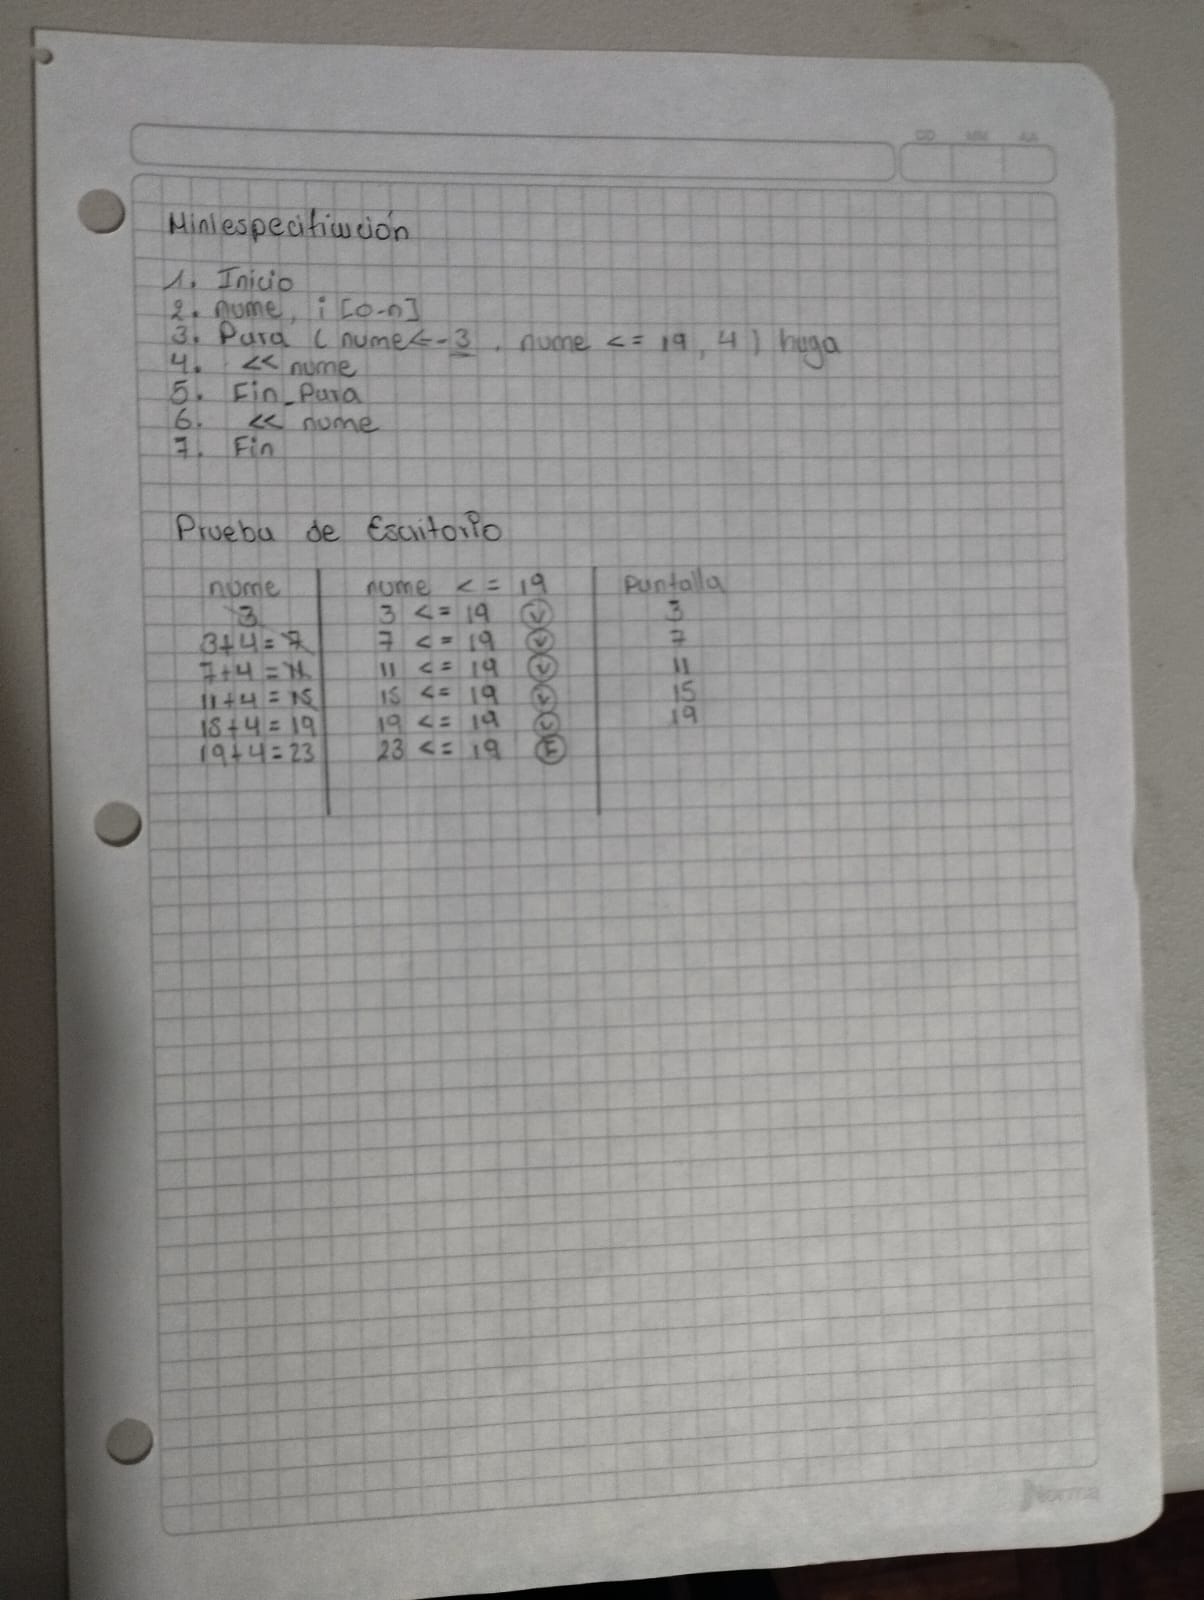 DD MM AA
Miniespecificación
1. Inicio
2. nume, i [0-n]
3. Para (nume<-3, nume <= 19, 4) haga
4. << nume
5. Fin_Para
6. << nume
7. Fin
Prueba de Escritorio
nume nume <= 19 Pantalla
3 3 <= 19 V 3
3+4=7 7 <= 19 V 7
7+4=11 11 <= 19 V 11
11+4=15 15 <= 19 V 15
15+4=19 19 <= 19 V 19
19+4=23 23 <= 19 F
Norma